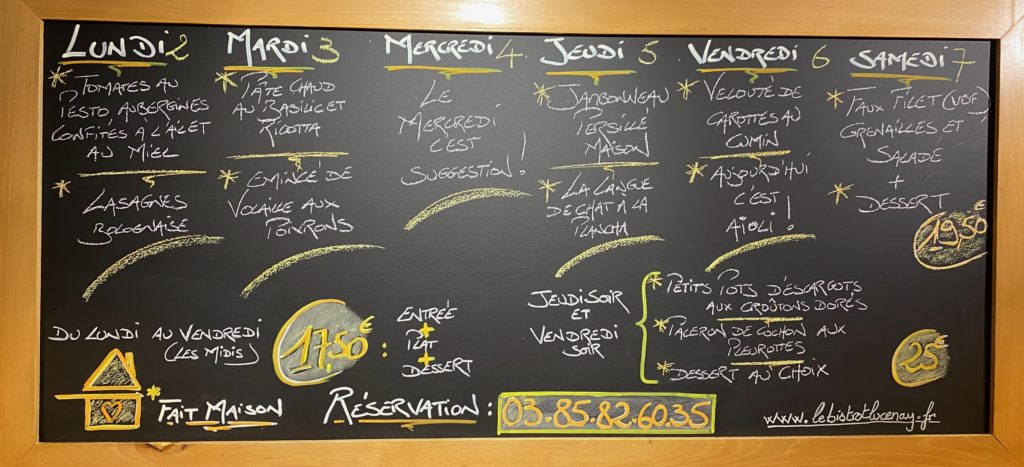 LUNDI 2
* TOMATES AU
PESTO, AUBERGINES
CONFITES A L'AIL ET
AU MIEL
* LASAGNES
BOLOGNAISE
MARDI 3
* PÂTE CHAUD
AU BASILIC ET
RICOTTA
* EMINCÉ DE
VOLAILLE AUX
POIVRONS
MERCREDI 4
LE
MERCREDI
C'EST
SUGGESTION !
JEUDI 5
* JAMBONNEAU
PERSILLÉ
MAISON
* LA LANGUE
DE CHAT À LA
PLANCHA
VENDREDI 6
* VELOUTÉ DE
CAROTTES AU
CUMIN
* AUJOURD'HUI
C'EST
AÏOLI !
SAMEDI 7
* FAUX FILET (VBF)
GRENAILLES ET
SALADE
+
* DESSERT
19,50€
DU LUNDI AU VENDREDI
(LES MIDIS)
17,50€ :
ENTRÉE
+
PLAT
+
DESSERT
JEUDI SOIR
ET
VENDREDI
SOIR
* PETITS POTS D'ESCARGOTS
AUX CROÛTONS DORÉS
* PALERON DE COCHON AUX
PLEUROTTES
* DESSERT AU CHOIX
25€
* FAIT MAISON
RÉSERVATION : 03.85.82.60.35
www.lebistrotlucenay.fr